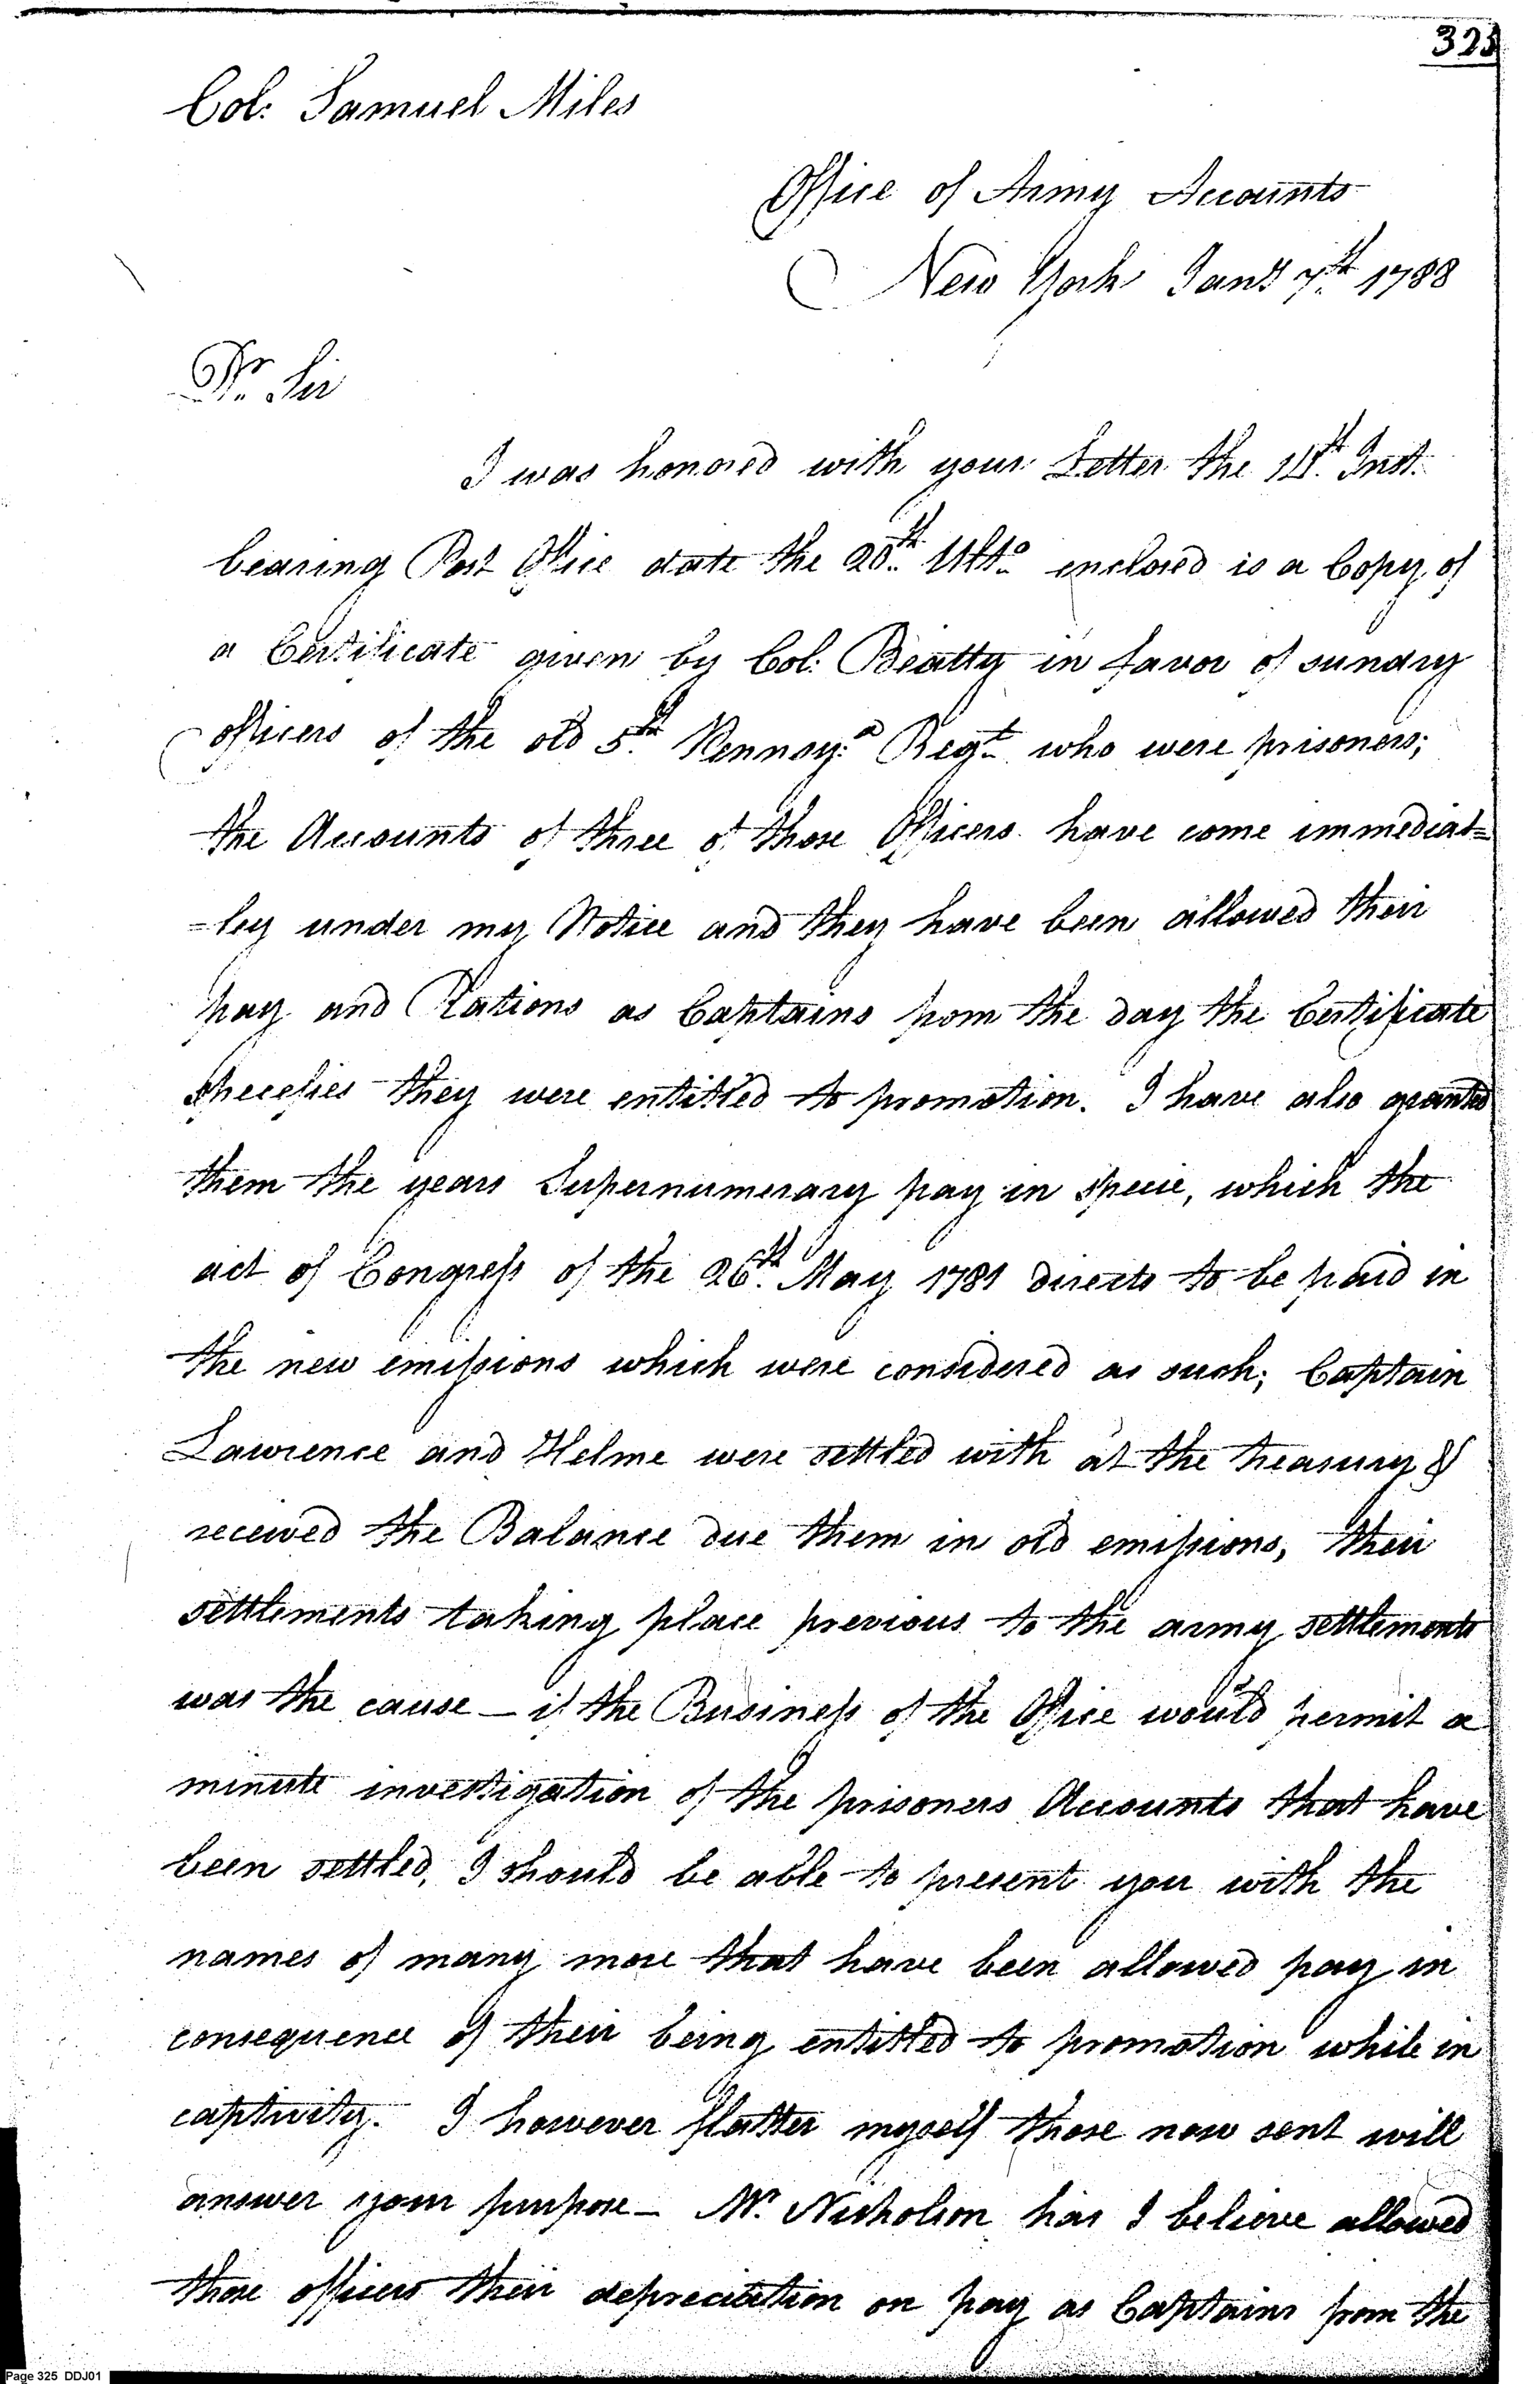 325
Col: Samuel Miles
Office of Army Accounts
New York Jany 7th 1788
Dr. Sir
I was honored with your Letter the Inst.
bearing Post Office date the 20th Ulto. enclosed is a Copy of
a Certificate given by Col: Beatty in favor of sundry
officers of the old 5th Pennsy:a Regt. who were prisoners;
the Accounts of three of those Officers have come immediat=
=ley under my Notice and they have been allowed their
pay and Rations as Captains from the day the Certificate
specefies they were entitled to promotion. I have also granted
them the years Supernumerary pay in specie, which the
act of Congress of the 26th May 1781 directs to be paid in
the new emissions which were considered as such; Captain
Lawrence and Helme were settled with at the treasury &
received the Balance due them in old emissions, their
settlements taking place previous to the army settlements
was the cause — if the Business of the Office would permit a
minute investigation of the prisoners Accounts that have
been settled, I should be able to present you with the
names of many more that have been allowed pay in
consequence of their being entitled to promotion while in
captivity. I however flatter myself those now sent will
answer your purpose — Mr. Nicholson has I believe allowed
those officers their depreciation on pay as Captains from the
Page 325 DDJ01